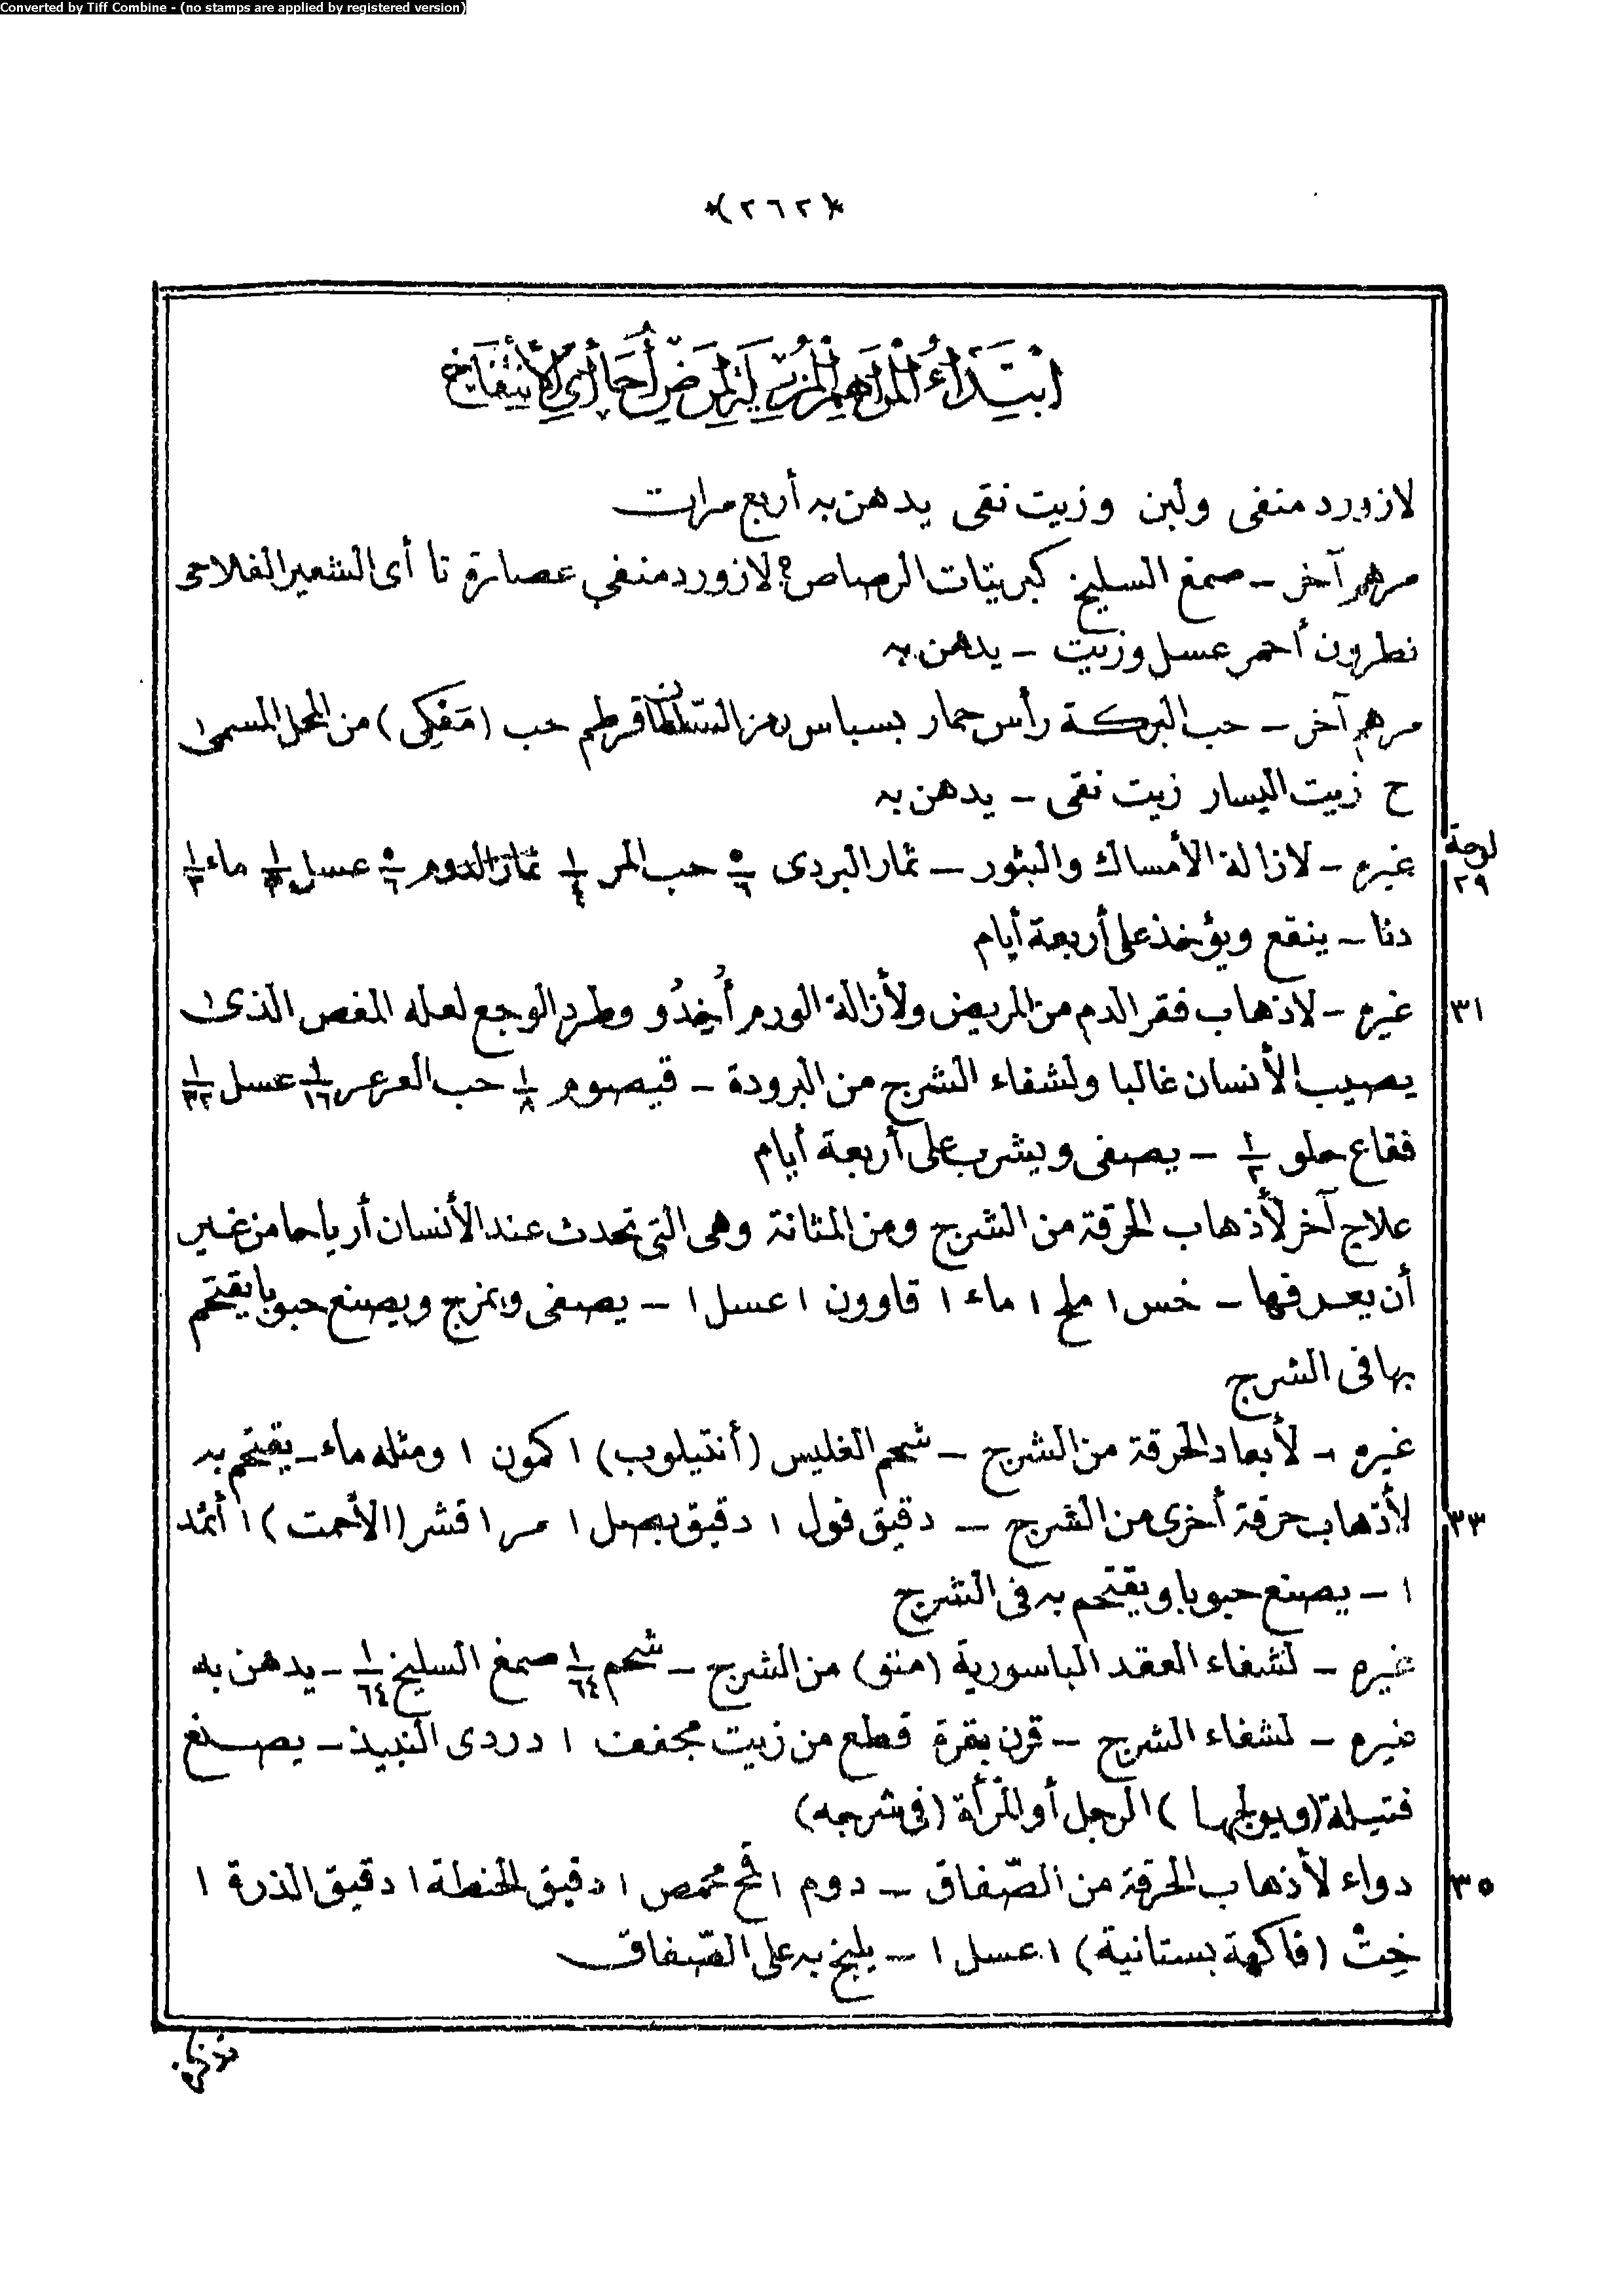 Converted by Tiff Combine - (no stamps are applied by registered version)
*(٢٦٢)*
ابْتِدَاءُ المَرَاهِمِ المُزِيلَةِ لِمَرَضِ أُحَا أَىِ الأَنْتِفَاخِ
لازورد منفى ولبن وزيت نقى يدهن به أربع مرات
مرهم آخر – صمغ السليخ كبريتات الرصاص؟ لازورد منفى عصارة تا أى الشعير الفلاحى
نطرون أحمر عسل وزيت – يدهن به
مرهم آخر – حب البركة رأس حمار بسباس قرطم حب (مَفكِى) من المحل المسمى
ح زيت اليسار زيت نقى – يدهن به
لوحة ٢٩
غيره – لازالة الأمساك والبثور – ثمار البردى ٥/٦ حب المر ١/٤ ثمار الدوم ٥/٦ عسل ماء ١/٣
دنا – ينقع ويؤخذ على أربعة أيام
٣١
غيره – لاذهاب فقر الدم من المريض ولأزالة الورم أُخِدُو وطرد الوجع لعله المغص الذى
يصيب الأنسان غالبا ولشفاء الشرج من البرودة – قيصوم ١/٨ حب العرعر ١/١٦ عسل ١/٣٢
فقاع حلو ١/٢ – يصفى ويشرب على أربعة أيام
علاج آخر لأذهاب الحرقة من الشرج ومن المثانة وهى التى تحدث عند الأنسان أرياحا من غير
أن يعرفها – خس ١ ملح ١ ماء ١ قاوون ١ عسل ١ – يصفى ويمزج ويصنع حبوبا يقتحم
بها فى الشرج
غيره – لأبعاد الحرقة من الشرج – شحم الغليس (أنتيلوب) ١ كمون ١ ومثله ماء – يقتحم به
٣٣
لأذهاب حرقة أخرى من الشرج – دقيق فول ١ دقيق بصل ١ مر ١ قشر (الأحمت) ١ أثمد
١ – يصنع حبوبا ويقتحم به فى الشرج
غيره – لشفاء العقد الباسورية (منتو) من الشرج – شحم ١/٦٤ صمغ السليخ ١/٦٤ – يدهن به
غيره – لشفاء الشرج – قرن بقرة قطع من زيت مجفف ١ دردى النبيذ – يصنع
فتيلة (ويولجها) الرجل أو المرأة (فى شرجه)
٣٥
دواء لأذهاب الحرقة من الصّفاق – دوم ١ قمح محمص ١ دقيق الحنطة ١ دقيق الذرة ١
خِتْ (فاكهة بستانية) ١ عسل ١ – يلبخ به على الصّفاق